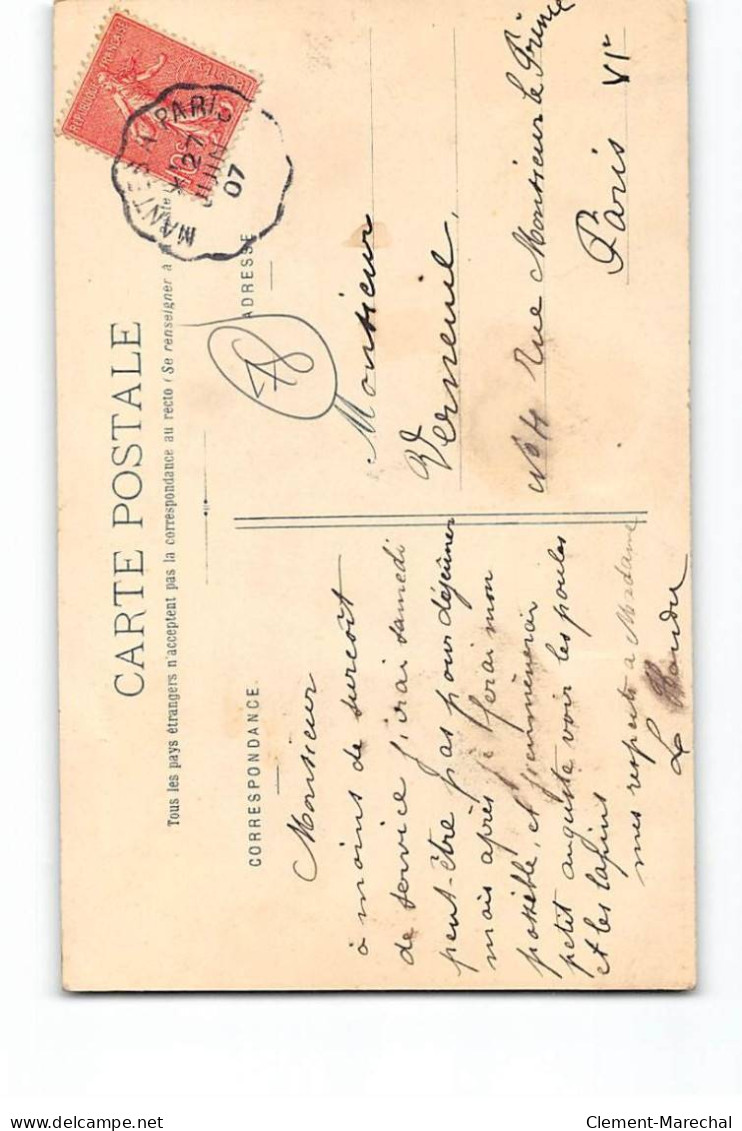 CARTE POSTALE
Tous les pays étrangers n'acceptent pas la correspondance au recto (Se renseigner à
CORRESPONDANCE
ADRESSE
REPUBLIQUE FRANÇAISE
POSTES
10c
MANTES A PARIS
27
JUIN
07
78
Monsieur
à moins de surcoit
de service j'irai samedi
peut-être pas pour déjeuner
mais après je ferai mon
possible, et j'emmènerai
petit auguste voir les poules
et les lapins
mes respects a Madame
Monsieur
Verneuil,
No 4 Rue Monsieur le Prince
Paris VIe
Clement-Marechal